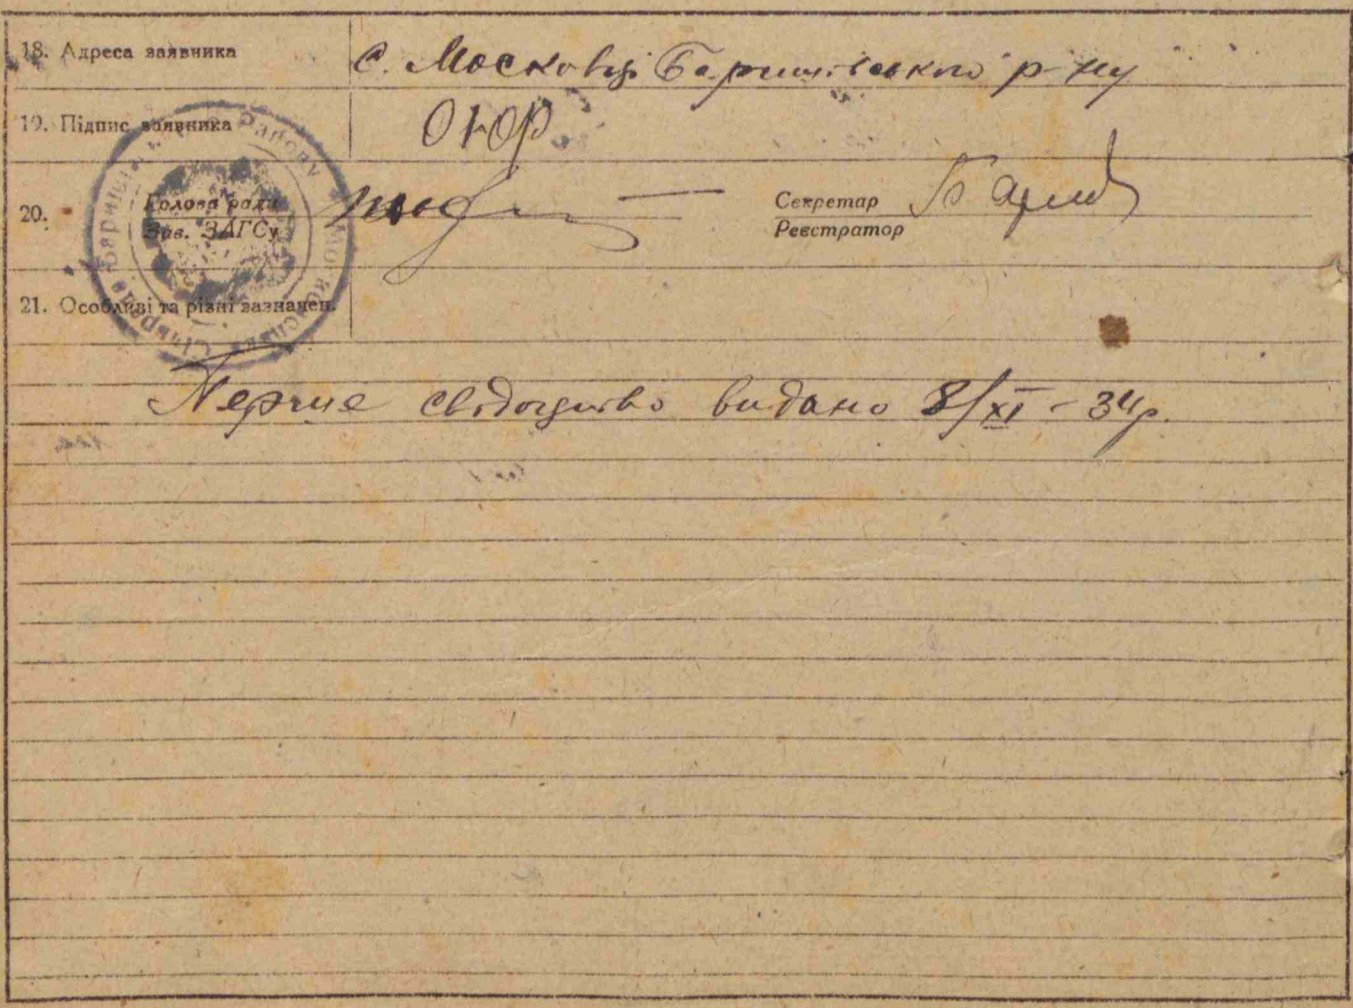 18. Адреса заявника с. Московці Баришівського р-ну
19. Підпис заявника ОЮР
20. Голова ради
Зав. ЗАГСу
Секретар
Реєстратор
21. Особливі та різні зазначен.
Перше свідоцтво видано 8/XI - 34р.